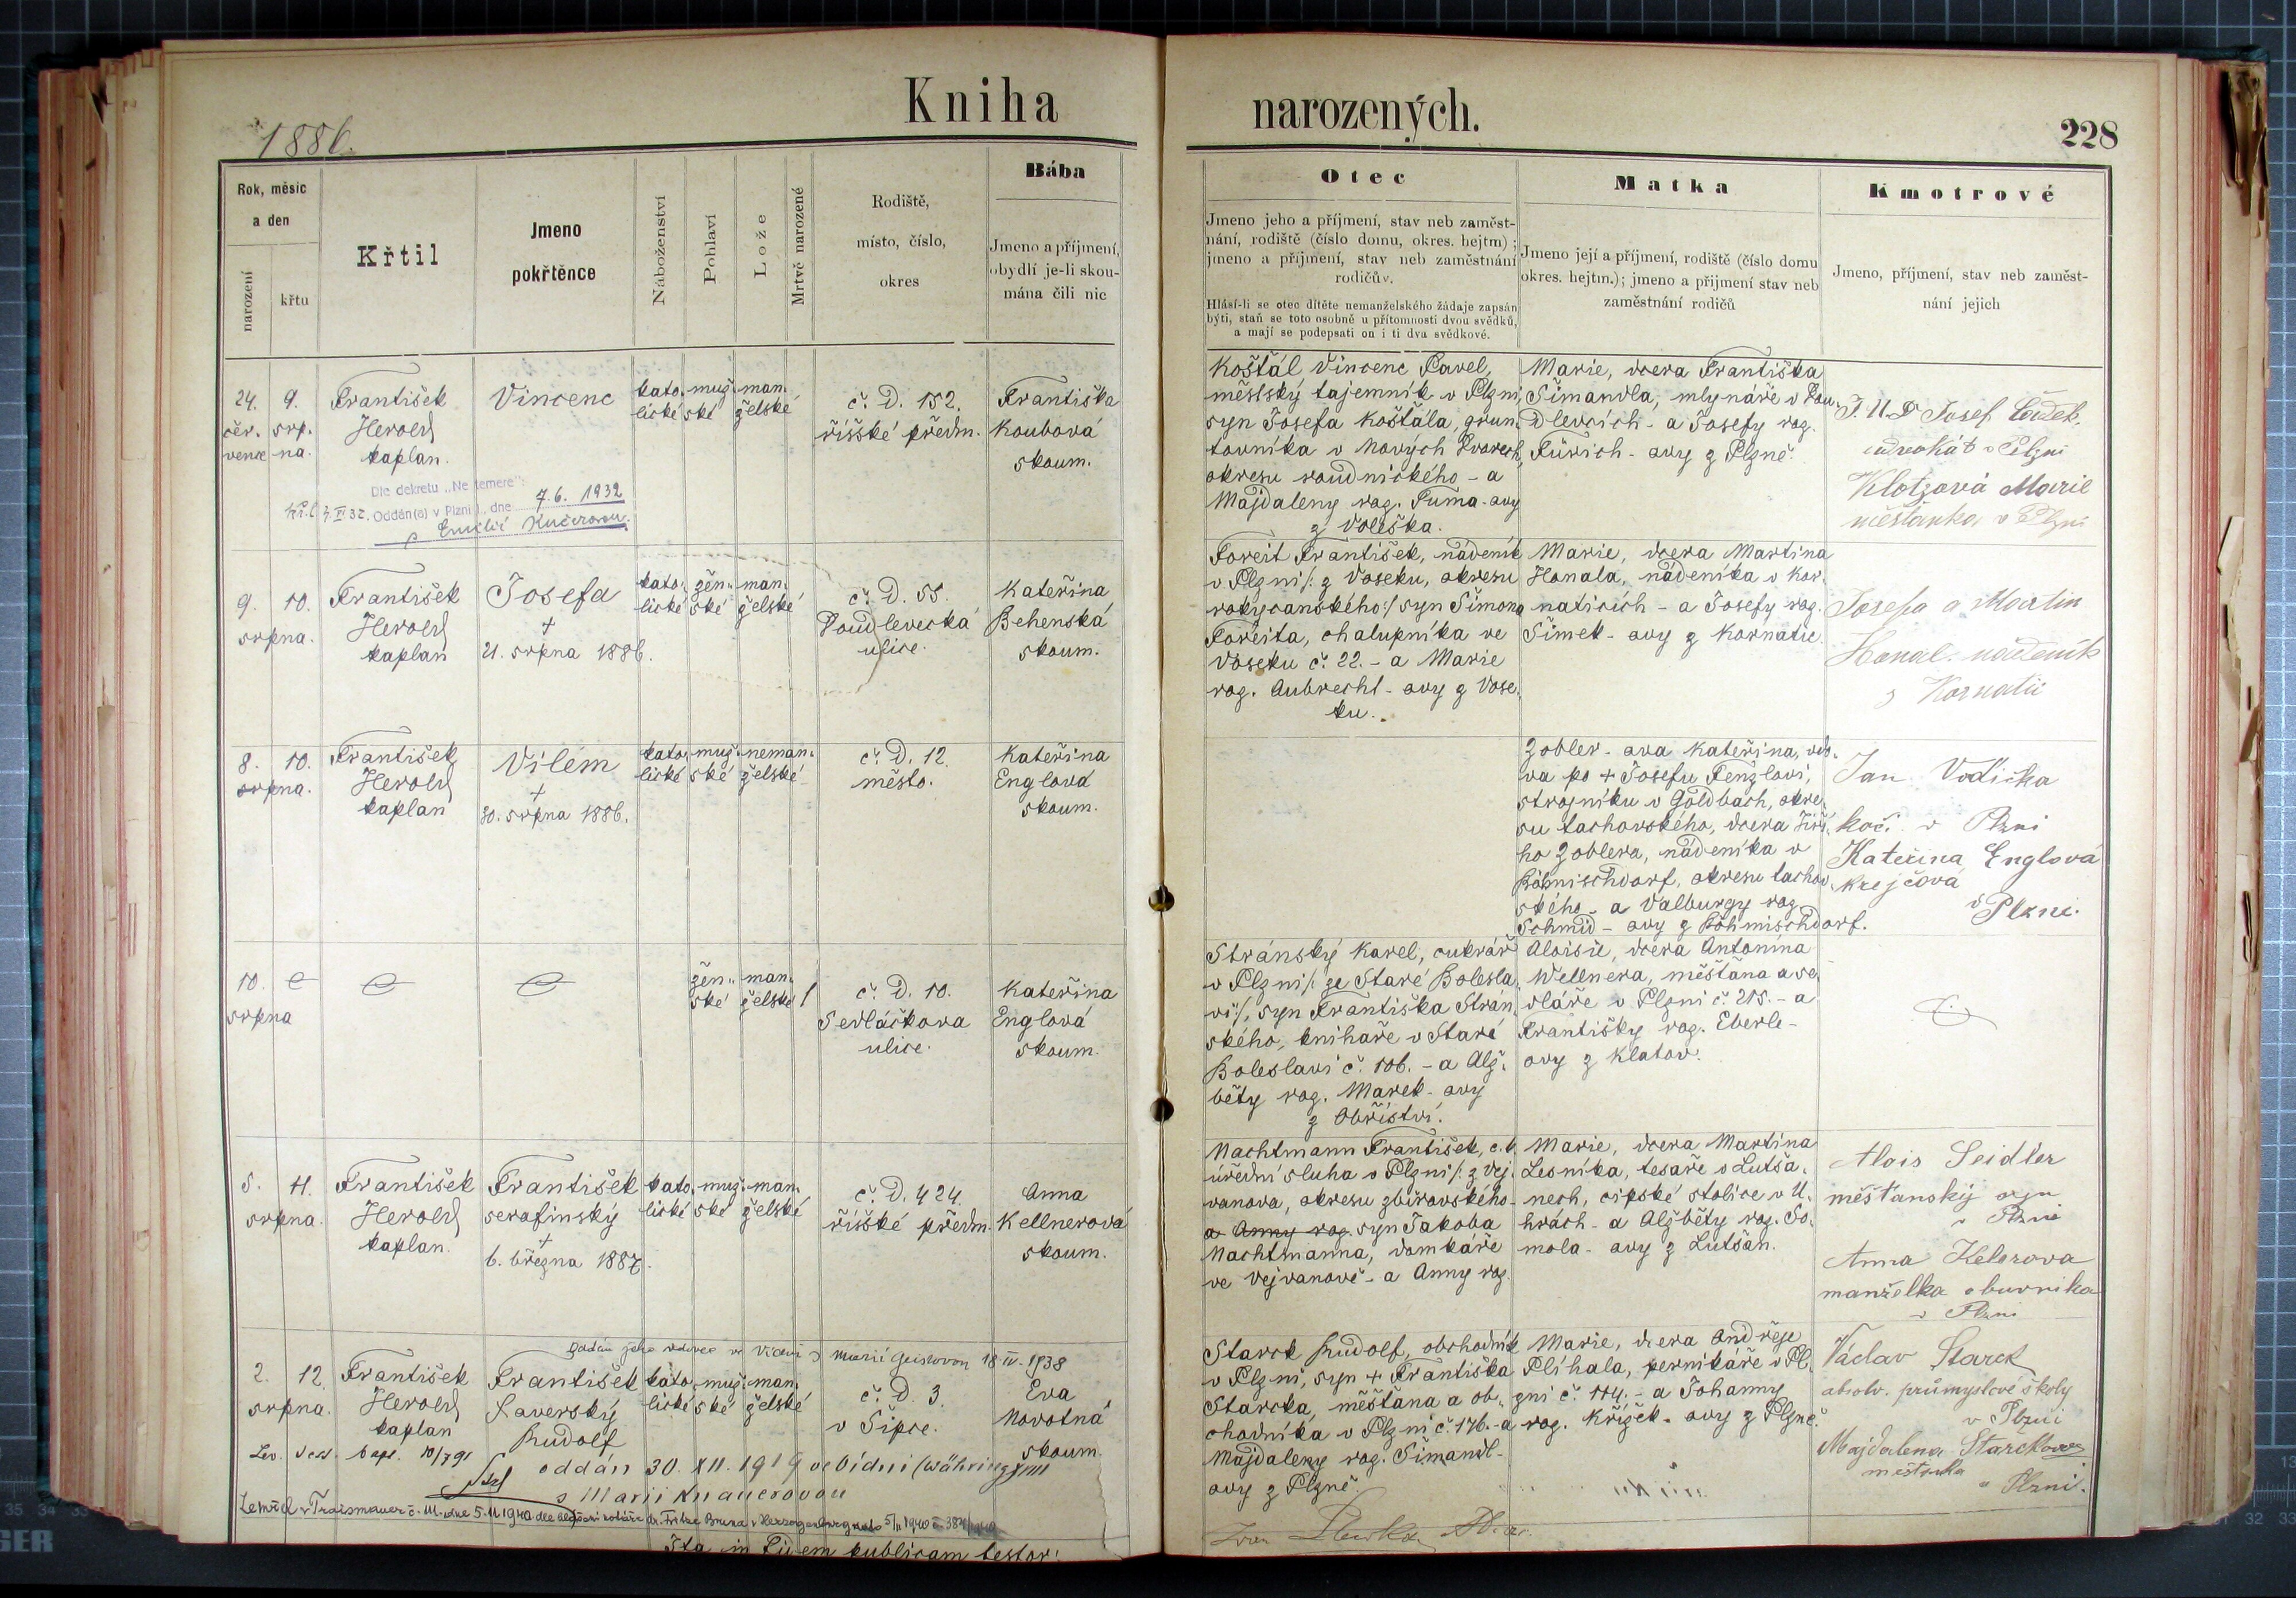 Kniha
narozených.
1886.
228
Rok, měsíc
a den
narození
křtu
Křtil
Jmeno
pokřtěnce
Náboženství
Pohlaví
Lože
Mrtvě narozené
Rodiště,
místo, číslo,
okres
Bába
Jmeno a příjmení,
obydlí je-li skou-
mána čili nic
Otec
Jmeno jeho a příjmení, stav neb zaměst-
nání, rodiště (číslo domu, okres. hejtm) ;
jmeno a příjmení, stav neb zaměstnání
rodičův.
Hlásí-li se otec dítěte nemanželského žádaje zapsán
býti, staň se toto osobně u přítomnosti dvou svědků,
a mají se podepsati on i ti dva svědkové.
Matka
Jmeno její a příjmení, rodiště (číslo domu
okres. hejtm.); jmeno a příjmení stav neb
zaměstnání rodičů
Kmotrové
Jmeno, příjmení, stav neb zaměst-
nání jejich
24.
čer.
vence
9.
srp.
na.
František
Herold
kaplan.
Vincenc
kato.
lické
muž.
ské
man.
želské
č. D. 152.
říšské předm.
Františka
Koubová
skoum.
Dle dekretu „Ne temere":
Oddán(a) v Plzni, dne 7.6. 1932
s Emilií Kučerovou.
Košťál Vincenc Pavel,
městský tajemník v Plzni,
syn Josefa Košťála, grun.
tovníka v Nových Dvorech,
okresu roudnického - a
Majdaleny roz. Tuma-ovy
z Voleška.
Marie, dcera Františka
Šimandla, mlynáře v Dou.
dlevcích - a Josefy roz.
Fürich - ovy z Plzně.
J. U. Dr Josef
advokát v Plzni
Klotzová Marie
měšťanka v Plzni
9. 10.
srpna.
František
Herold
kaplan
Josefa
+
21. srpna 1886.
kato.
lické
žen.
ské
man.
želské
č. D. 55.
Doudlevecká
ulice.
Kateřina
Behenská
skoum.
Foreit František, nádeník
v Plzni /: z Voseku, okresu
rokycanského:/ syn Šimona
Foreita, chalupníka ve
Voseku č. 22. - a Marie
roz. Aubrecht - ovy z Vose.
ku.
Marie, dcera Martina
Honala, nádeníka v Kor.
naticích - a Josefy roz.
Šimek - ovy z Kornatic.
Josefa a Martin
Honal. nádeník
z Kornatic
8. 10.
srpna.
František
Herold
kaplan
Vilém
+
30. srpna 1886.
kato.
lické
muž.
ské
neman.
želské
č. D. 12.
město.
Kateřina
Englová
skoum.
Zobler - ova Kateřina, vdo.
va po + Josefu Fenzlovi,
strojníku v Goldbach, okre.
su tachovského, dcera Jiří.
ho Zoblera, nádeníka v
Böhmischdorf, okresu tachov.
ského - a Valburgy roz.
Schmid - ovy z Böhmischdorf.
Jan Vodička
kočí v Plzni
Kateřina Englová
krejčová
v Plzni.
10.
srpna
žen.
ské
man.
želské
1
č. D. 10.
Sedláčkova
ulice.
Kateřina
Englová
skoum.
Stránský Karel, cukrář
v Plzni /: ze Staré Bolesla.
vi:/, syn Františka Strán.
ského, knihaře v Staré
Boleslavi č. 106. - a Alž.
běty roz. Marek - ovy
z Obříství.
Aloisie, dcera Antonína
Wellnera, měšťana a se.
dláře v Plzni č. 215. - a
Františky roz. Eberle -
ovy z Klatov.
5. 11.
srpna.
František
Herold
kaplan.
František
serafinský
+
6. března 1887.
kato.
lické
muž.
ské
man.
želské
č. D. 424.
říšské předm.
Anna
Kellnerová
skoum.
Nachtmann František, c. k.
úřední sluha v Plzni /: z Vej.
vanova, okresu zbirovského -
a Anny roz. syn Jakoba
Nachtmanna, domkáře
ve Vejvanově - a Anny roz.
Marie, dcera Martina
Lesníka, tesaře v Lutša.
nech, cipské stolice v U.
hrách - a Alžběty roz. So.
mola - ovy z Lutšan.
Alois Seidler
měšťanský syn
v Plzni
Anna Kelerova
manželka obuvníka
v Plzni
Oddán jako vdovec ve Vídni s Marií Geislovou 18. IV. 1938
2. 12.
srpna.
František
Herold
kaplan
František
Xaverský
Rudolf
kato.
lické
muž.
ské
man.
želské
č. D. 3.
v Šipce.
Eva
Novotná
skoum.
oddán 30. XII. 1919 ve Vídni (Währing XVIII
s Marií Knauerovou
Zemřel v Traismauer č. 111. dne 5.II 1940
Starck Rudolf, obchodník
v Plzni, syn + Františka
Starcka, měšťana a ob.
chodníka v Plzni č. 176. - a
Majdaleny roz. Šimandl -
ovy z Plzně.
Marie, dcera Ondřeje
Plíhala, perníkáře v Pl.
zni č. 114. - a Johanny
roz. Křížek - ovy z Plzně.
Václav Starck
absolv. průmyslové školy
v Plzni
Majdalena Starckova
měšťanka
v Plzni.
Ita in fidem publicam testor: